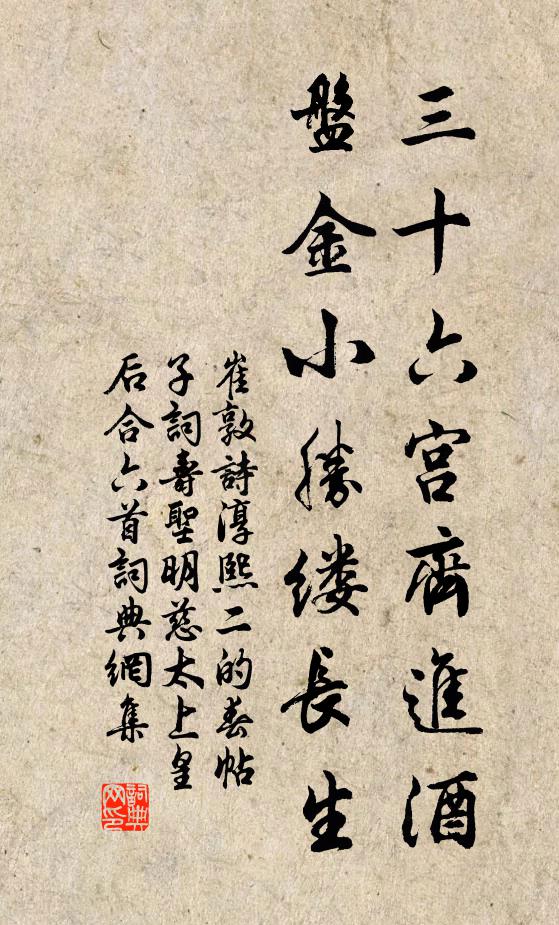 三十六宫齊進酒
盤金小勝缕長生
崔敦詩淳熙二的春帖
子詞壽聖明慈太上皇
后合六首詞典網集
詞典
网印